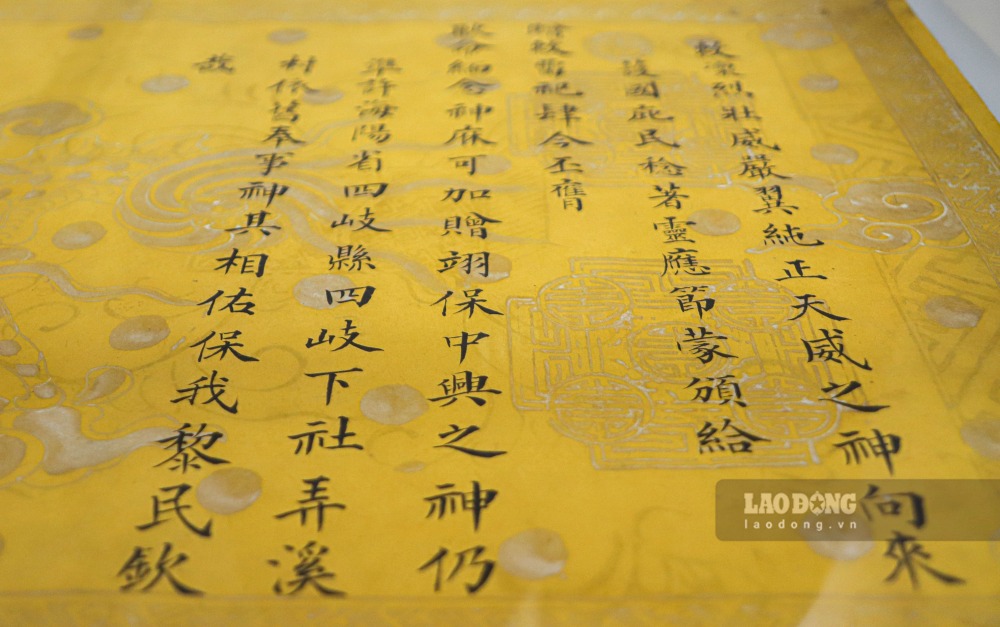 敕宏烈壯威嚴翼純正天威之神向來
護國庇民稔著靈應節蒙頒給
贈敕留祀肆今丕膺
耿命緬念神庥可加贈翊保中興之神仍
準許海陽省四岐縣四岐下社弄溪
村依舊奉事神其相佑保我黎民欽
哉
LAO ĐỘNG
laodong.vn